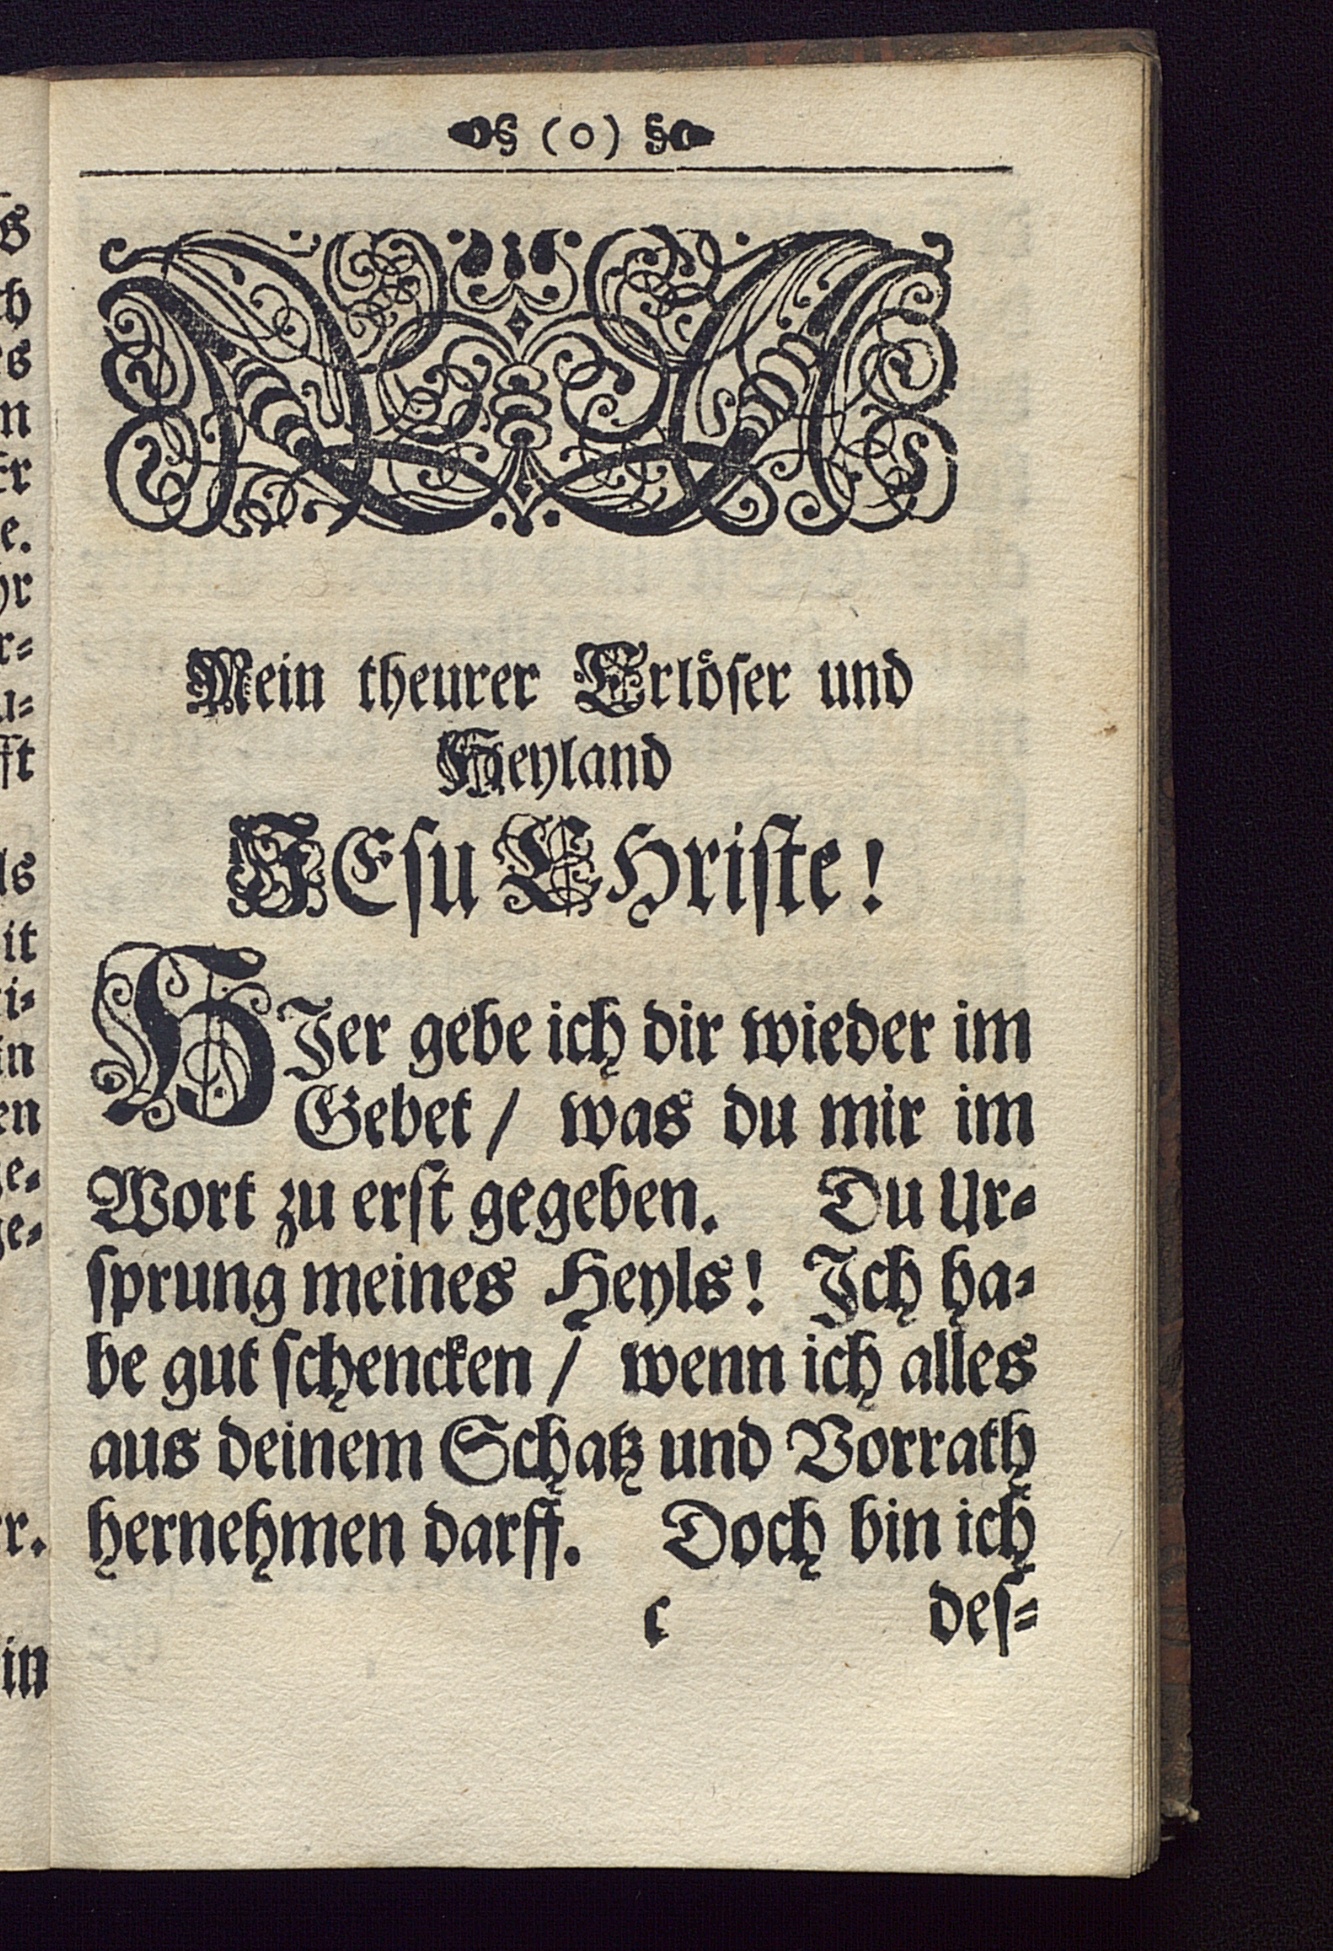 § (o) §
Mein theurer Erlöser und
Heyland
JEsu CHriste!
HJer gebe ich dir wieder im
Gebet / was du mir im
Wort zu erst gegeben. Du Ur=
sprung meines Heyls! Jch ha=
be gut schencken / wenn ich alles
aus deinem Schatz und Vorrath
hernehmen darff. Doch bin ich
c des=